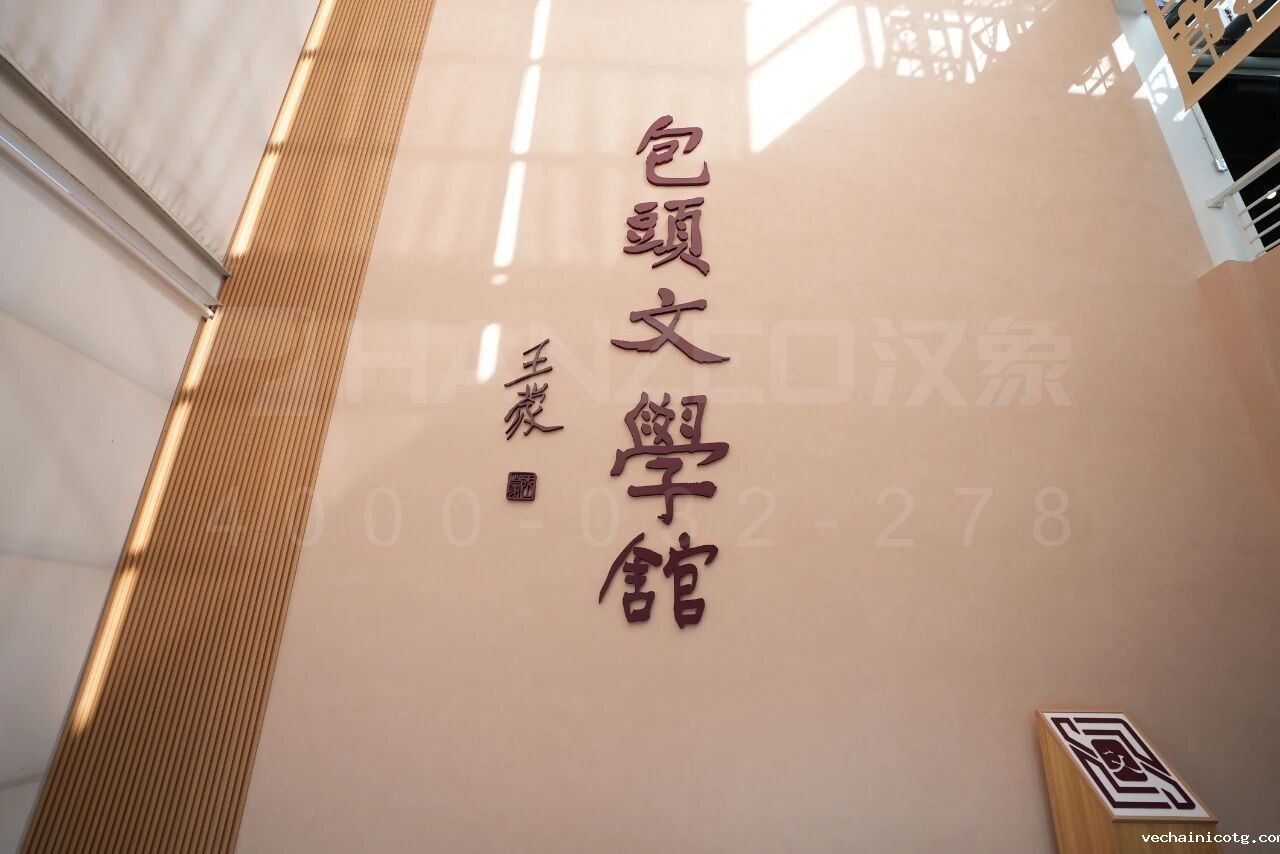 包頭文學舘
王蒙
HANZCO汉象
4000-032-278
文
vechainicotg.com